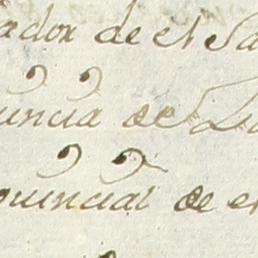 ador de el Sa
uncia de Lu
ouincial de e